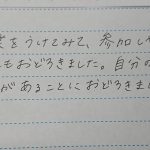 をうけてみて、参加し
もおどろきました。自分の
があることにおどろきまし